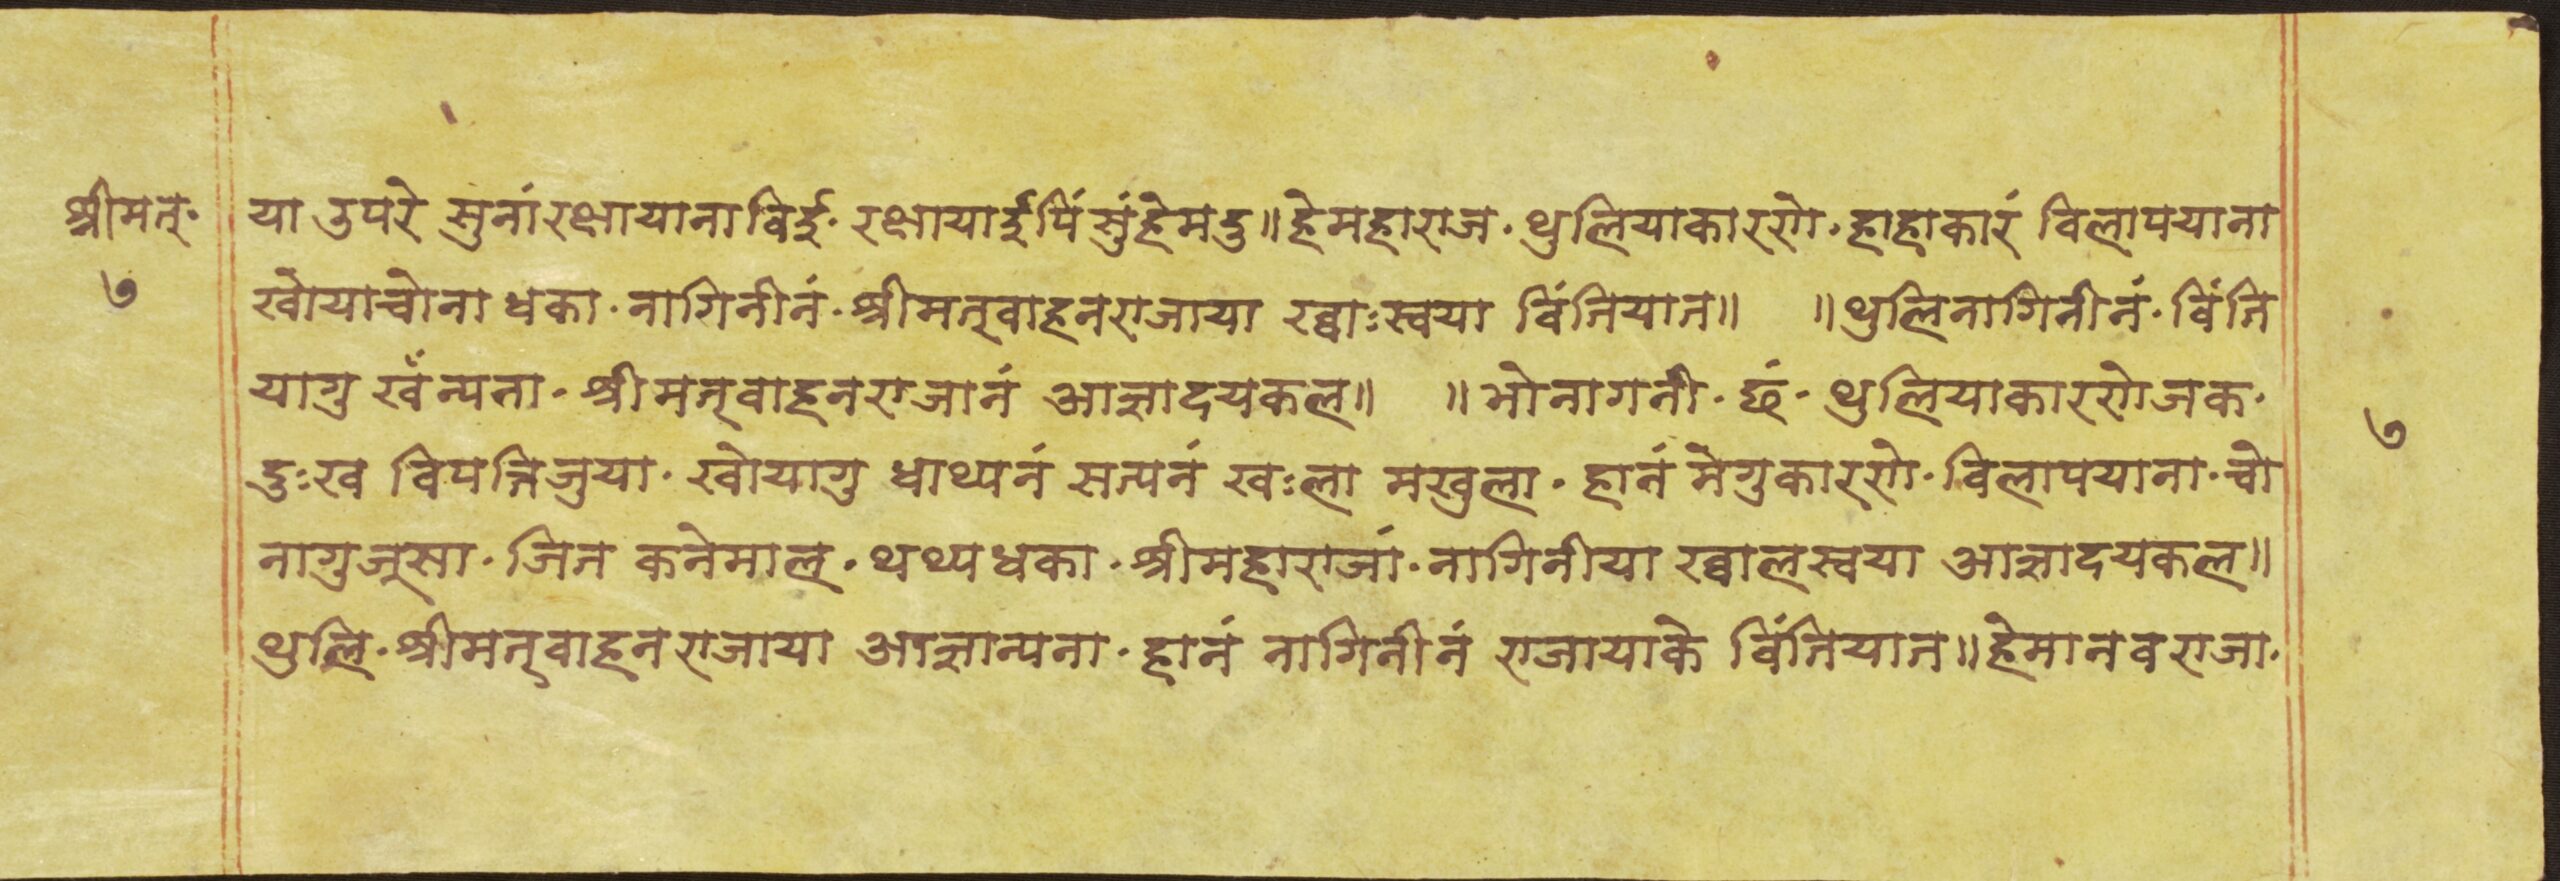 श्रीमत्· या उपरे सुनां रक्षायाना विई· रक्षायाईपिं सुंहे मदु॥ हे महाराज· थुलियाकारणे· हाहाकारं विलापयाना
७ खोयाच्वोना धका· नागिनीनं· श्रीमत्वाहनराजाया ख्वाःस्वया विंतियात॥ ॥ थुलिनागिनीनं· विंति
यागु खँन्यना· श्रीमत्वाहनराजानं आज्ञादयकल॥ ॥ भोनागनी· छं· थुलियाकारणे जक·
दुःख विपत्तिजुया· खोयागु धाथ्यनं सत्यनं खःला मखुला· हानं मेगुकारणे· विलापयाना· च्वो
७
नागुजूसा· जित कनेमाल्· थथ्यधका· श्रीमहाराजां· नागिनीया ख्वालस्वया आज्ञादयकल॥
थुलि· श्रीमत्वाहनराजाया आज्ञान्यना· हानं नागिनीनं राजायाके विंतियात॥ हेमानवराजा·